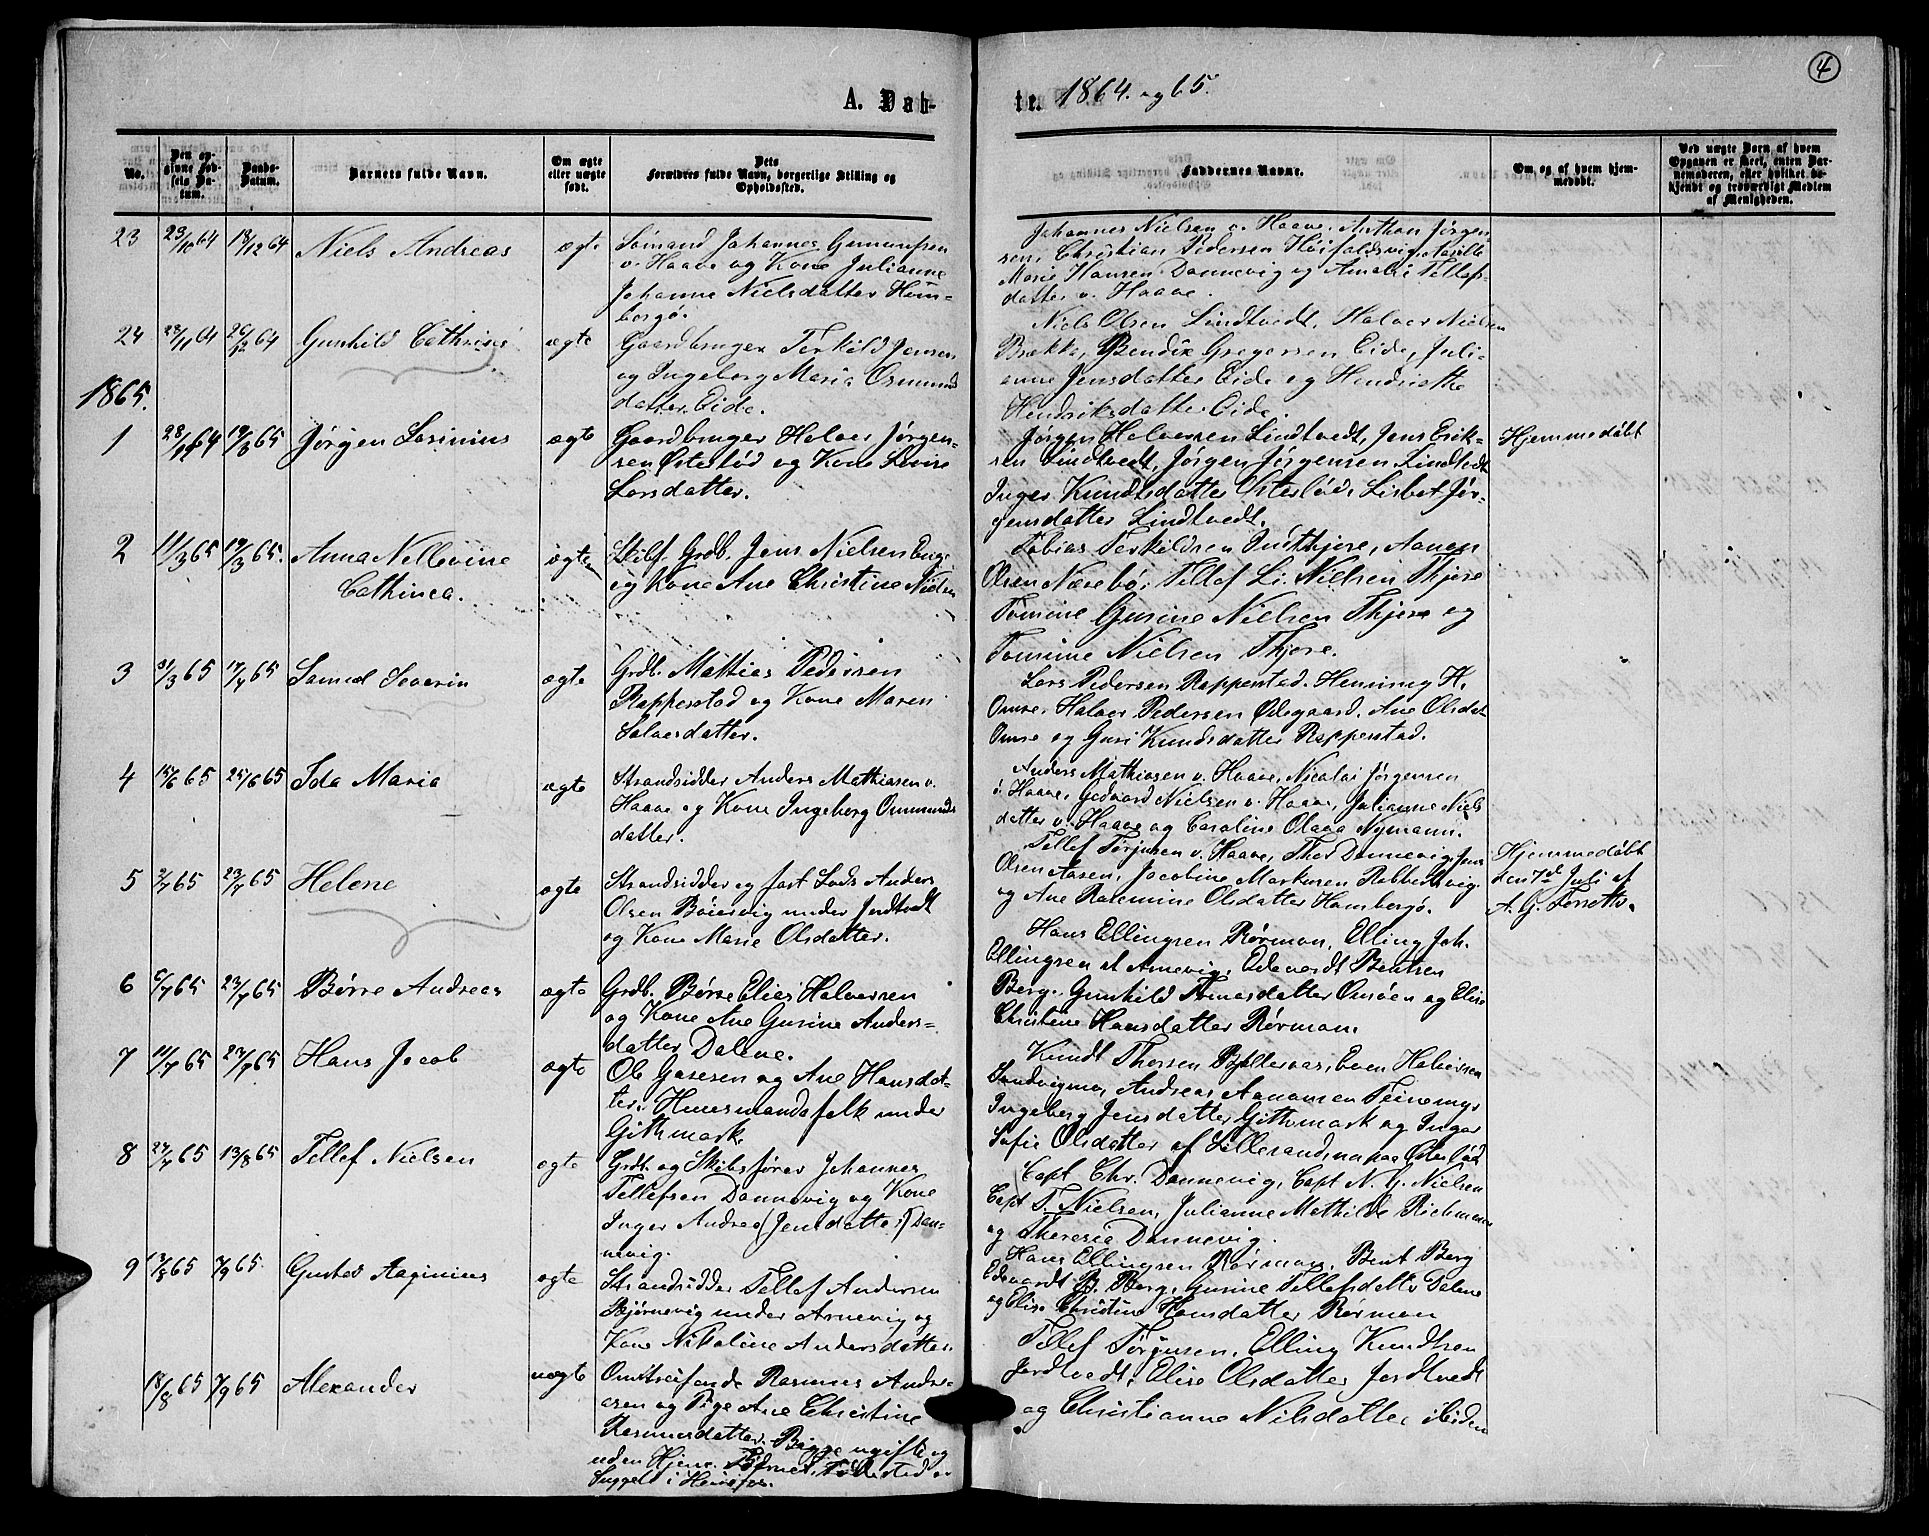 4
A. Døb-
te. 1864. og 65.
No.
Den op-
givne Fød-
sels Da-
tum.
Daabs-
Datum.
Barnets fulde Navn.
Om ægte
eller uægte
født.
Dets
Forældres fulde Navn, borgerlige Stilling og
Opholdssted.
Faddernes Navne.
Om og af hvem hjem-
medøbt.
Ved uægte Børn af hvem
Opgaven er skeet, enten Bar-
nemoderen, eller hvilket be-
kjendt og troværdigt Medlem
af Menigheden.
23
23/10 64
18/12 64
Niels Andreas
ægte
Sømand Johannes Gunnufsen
v. Haave og Kone Julianne
Johanne Nielsdatter Hom-
borgø.
Johannes Nielsen v. Haave, Anthon Jørgen-
sen, Christian Pedersen
Marie Hansen Dannevig og Amalie Tellefs-
datter v. Haave.
24
23/11 64
26/12 64
Gunhild Cathrine
ægte
Gaardbruger Terkild Jensen
og Ingeborg Maria Osmunds
datter Eide.
Niels Olsen Lindtvedt, Halvor Nielsen
Brække, Bendix Gregersen Eide, Juli-
anne Jensdatter Eide og Hendriette
Hendriksdatter Eide.
1865.
1
28/12 64
19/3 65
Jørgen Sørinius
ægte
Gaardbruger Halvor Jørgen-
sen Østerød og Kone Lovise
Larsdatter.
Jørgen Halvorsen Lindtvedt, Jens Erik-
sen Lindtvedt, Jørgen Jørgensen Lindtvedt
Inger Knudtsdatter Østerød, Lisbet Jør-
gensdatter Lindtvedt.
Hjemmedøbt
2
11/3 65
19/3 65.
Anna Nellevine
Cathinca.
ægte
Grdb. Jens Nielsen
og Kone Ane Christine Nielsen
Tobias Terkildsen Indthjøre, Aanon
Olsen Næsebø, Tellef L. Nielsen Thjøre
Tomine Gurine Nielsen Thjøre og
Tomine Nielsen Thjøre.
3
31/3 65
17/4 65
Samuel Severin
ægte
Grdb. Mathias Pedersen
Rapperstad og Kone Maren
Salvesdatter.
Lars Pedersen Rapperstad. Henning H.
Omre, Halvor Pedersen Ødegaard, Ane Olsdat
Omre og Guri Knudsdatter Rapperstad.
4
15/6 65
25/6 65
Ida Maria
ægte
Strandsidder Anders Mathiasen v.
Haave og Kone Ingeborg Ommunds
datter.
Anders Mathiasen v. Haave, Nicolai Jørgensen
v. Haave, Nielsen v. Haave, Julianne Niels
datter v. Haave og Caroline Olava Nymann.
5
2/7 65
23/7 65
Helene
ægte
Strandsidder og fast Lods Anders
Olsen Bøiervig under Jordtvedt
og Kone Marie Olsdatter.
Tellef Torjusen v. Haave, Thor Dannevig, Jens
Olsen Aasen, Jacobine Markusen Rabbersvig
og Ane Rasmine Olsdatter Homborgø.
Hjemmedøbt
den 7d Juli af
A. G.
6
6/7 65
23/7 65
Børre Andreas
ægte
Grdb. Børre Elias Halvorsen
og Kone Ane Gurine Anders-
datter Dalene.
Hans Ellingsen Rørmon, Elling Joh.
Ellingsen af Arnevig, Edevardt Bentsen
Berg, Gunhild Tomasdatter Omsøen og Elise
Christine Hansdatter Rørmon.
7
11/7 65
23/7 65
Hans Jacob
ægte
Ole Gasesen og Ane Hansdat-
ter. Huusmandsfolk under
Githmark.
Knudt Thorsen Bjelleraas, Even Halvorsen
Sandvigmo, Andreas Aanonsen Teinemyr
Ingeborg Jensdatter Githmark og Inger
Sofie Olsdatter af Lillesand
8
24/7 65
13/8 65
Tellef Nielsen
ægte
Grdb. og Skibsfører Johannes
Tellefsen Dannevig og Kone
Inger Andrea (Jensdatter) Dan-
nevig.
Capt Chr. Dannevig, Capt N. G. Nielsen
Capt T. Nielsen, Julianne Mathilde Richmann
og Theresia Dannevig.
9
13/8 65
3/9 65.
Gustav Aaginius
ægte
Strandsidder Tellef Andersen
Bjørnevig under Arnevig og
Kone Nikoline Andersdatter.
Hans Ellingsen Rørmon, Bent Berg
Edevardt B. Berg, Gurine Tellefsdatter Dalene
og Elise Christine Hansdatter Rørmon
18/8 65
3/9 65
Alexander
uægte
Omstreifende Rasmus Andre-
asen og Pige Ane Christine
Rasmusdatter. Begge ugifte og
uden Hjem.
Tellef Torjusen, Elling Knudtsen
Jordtvedt, Elise Olsdatter Jordtvedt
og Christianne Nilsdatter ibiden